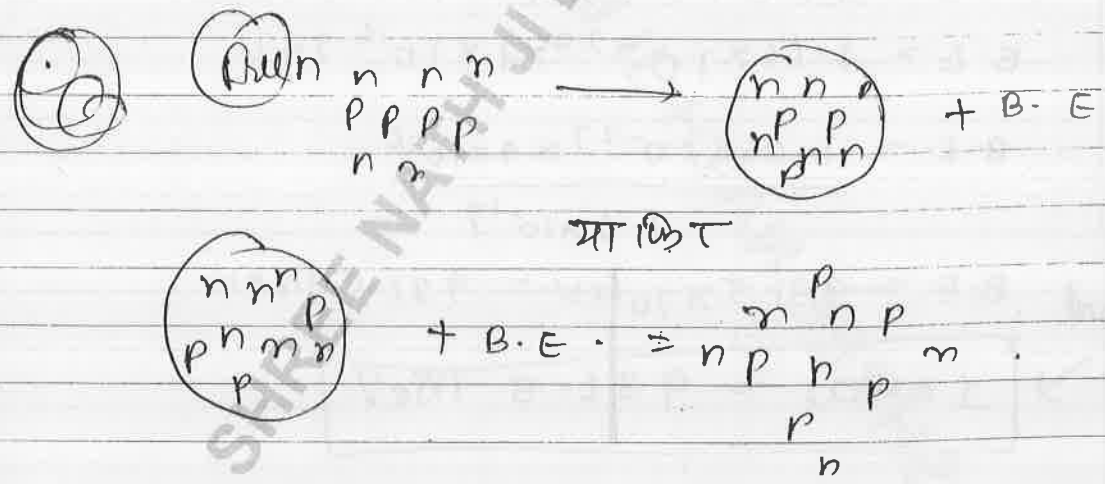 n n n n
p p p p
n n
n n
n p p
n n
p
+ B. E
या फिर
n n n
p n n n p
p
+ B. E. =
p
n n p
n p n n .
p p
n
SHREE NATH JI